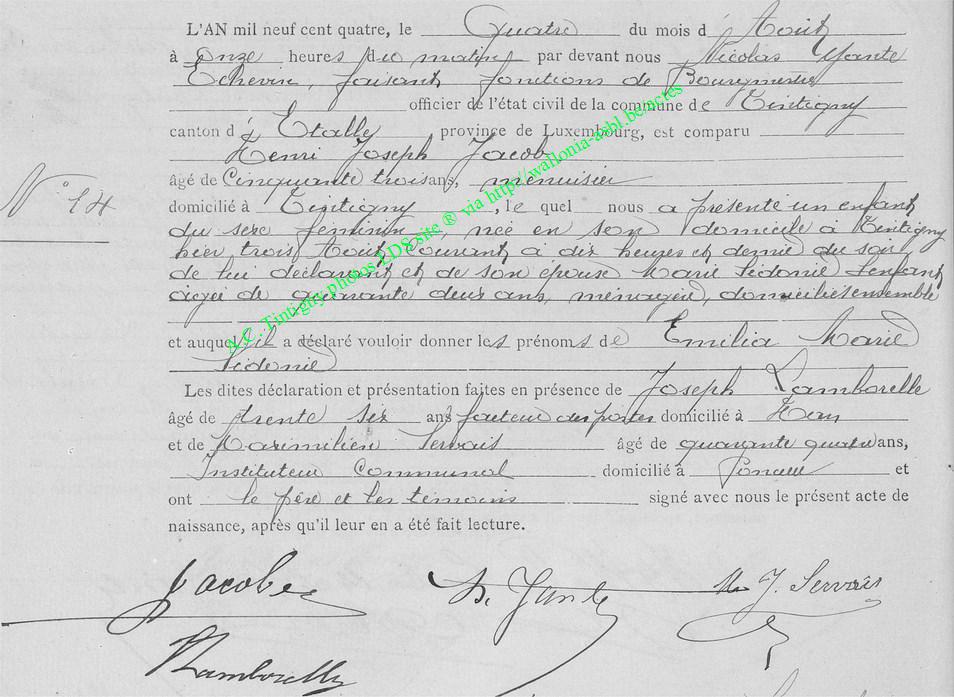 L'AN mil neuf cent quatre, le Quatre du mois d'Août
à onze heures du matin par devant nous Nicolas Yante
Echevin, faisant fonctions de Bourgmestre
officier de l'état civil de la commune de Tintigny
canton d'Etalle province de Luxembourg, est comparu
Henri Joseph Jacob
âgé de Cinquante trois ans, menuisier
N° 14
domicilié à Tintigny, le quel nous a présenté un enfant
du sexe féminin, née en son domicile à Tintigny
hier trois Août courant à dix heures et demie du soir
de lui déclarant et de son épouse Marie Sidonie Lenfant
âgée de quarante deux ans, ménagère, domiciliés ensemble
et auquel il a déclaré vouloir donner les prénoms de Emilia Marie
Sidonie
Les dites déclaration et présentation faites en présence de Joseph Lamborelle
âgé de trente six ans facteur des postes domicilié à Han
et de Maximilien Servais âgé de quarante quatre ans,
Instituteur Communal domicilié à Poncelle et
ont le père et les témoins signé avec nous le présent acte de
naissance, après qu'il leur en a été fait lecture.
Jacob N. Yante M. J. Servais
Lamborelle
A.C. Tintigny photos CDS site ® via http://wallonia-asbl.be/actes